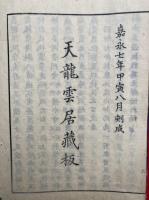 嘉永七年甲寅八月刻成
天龍雲居藏板